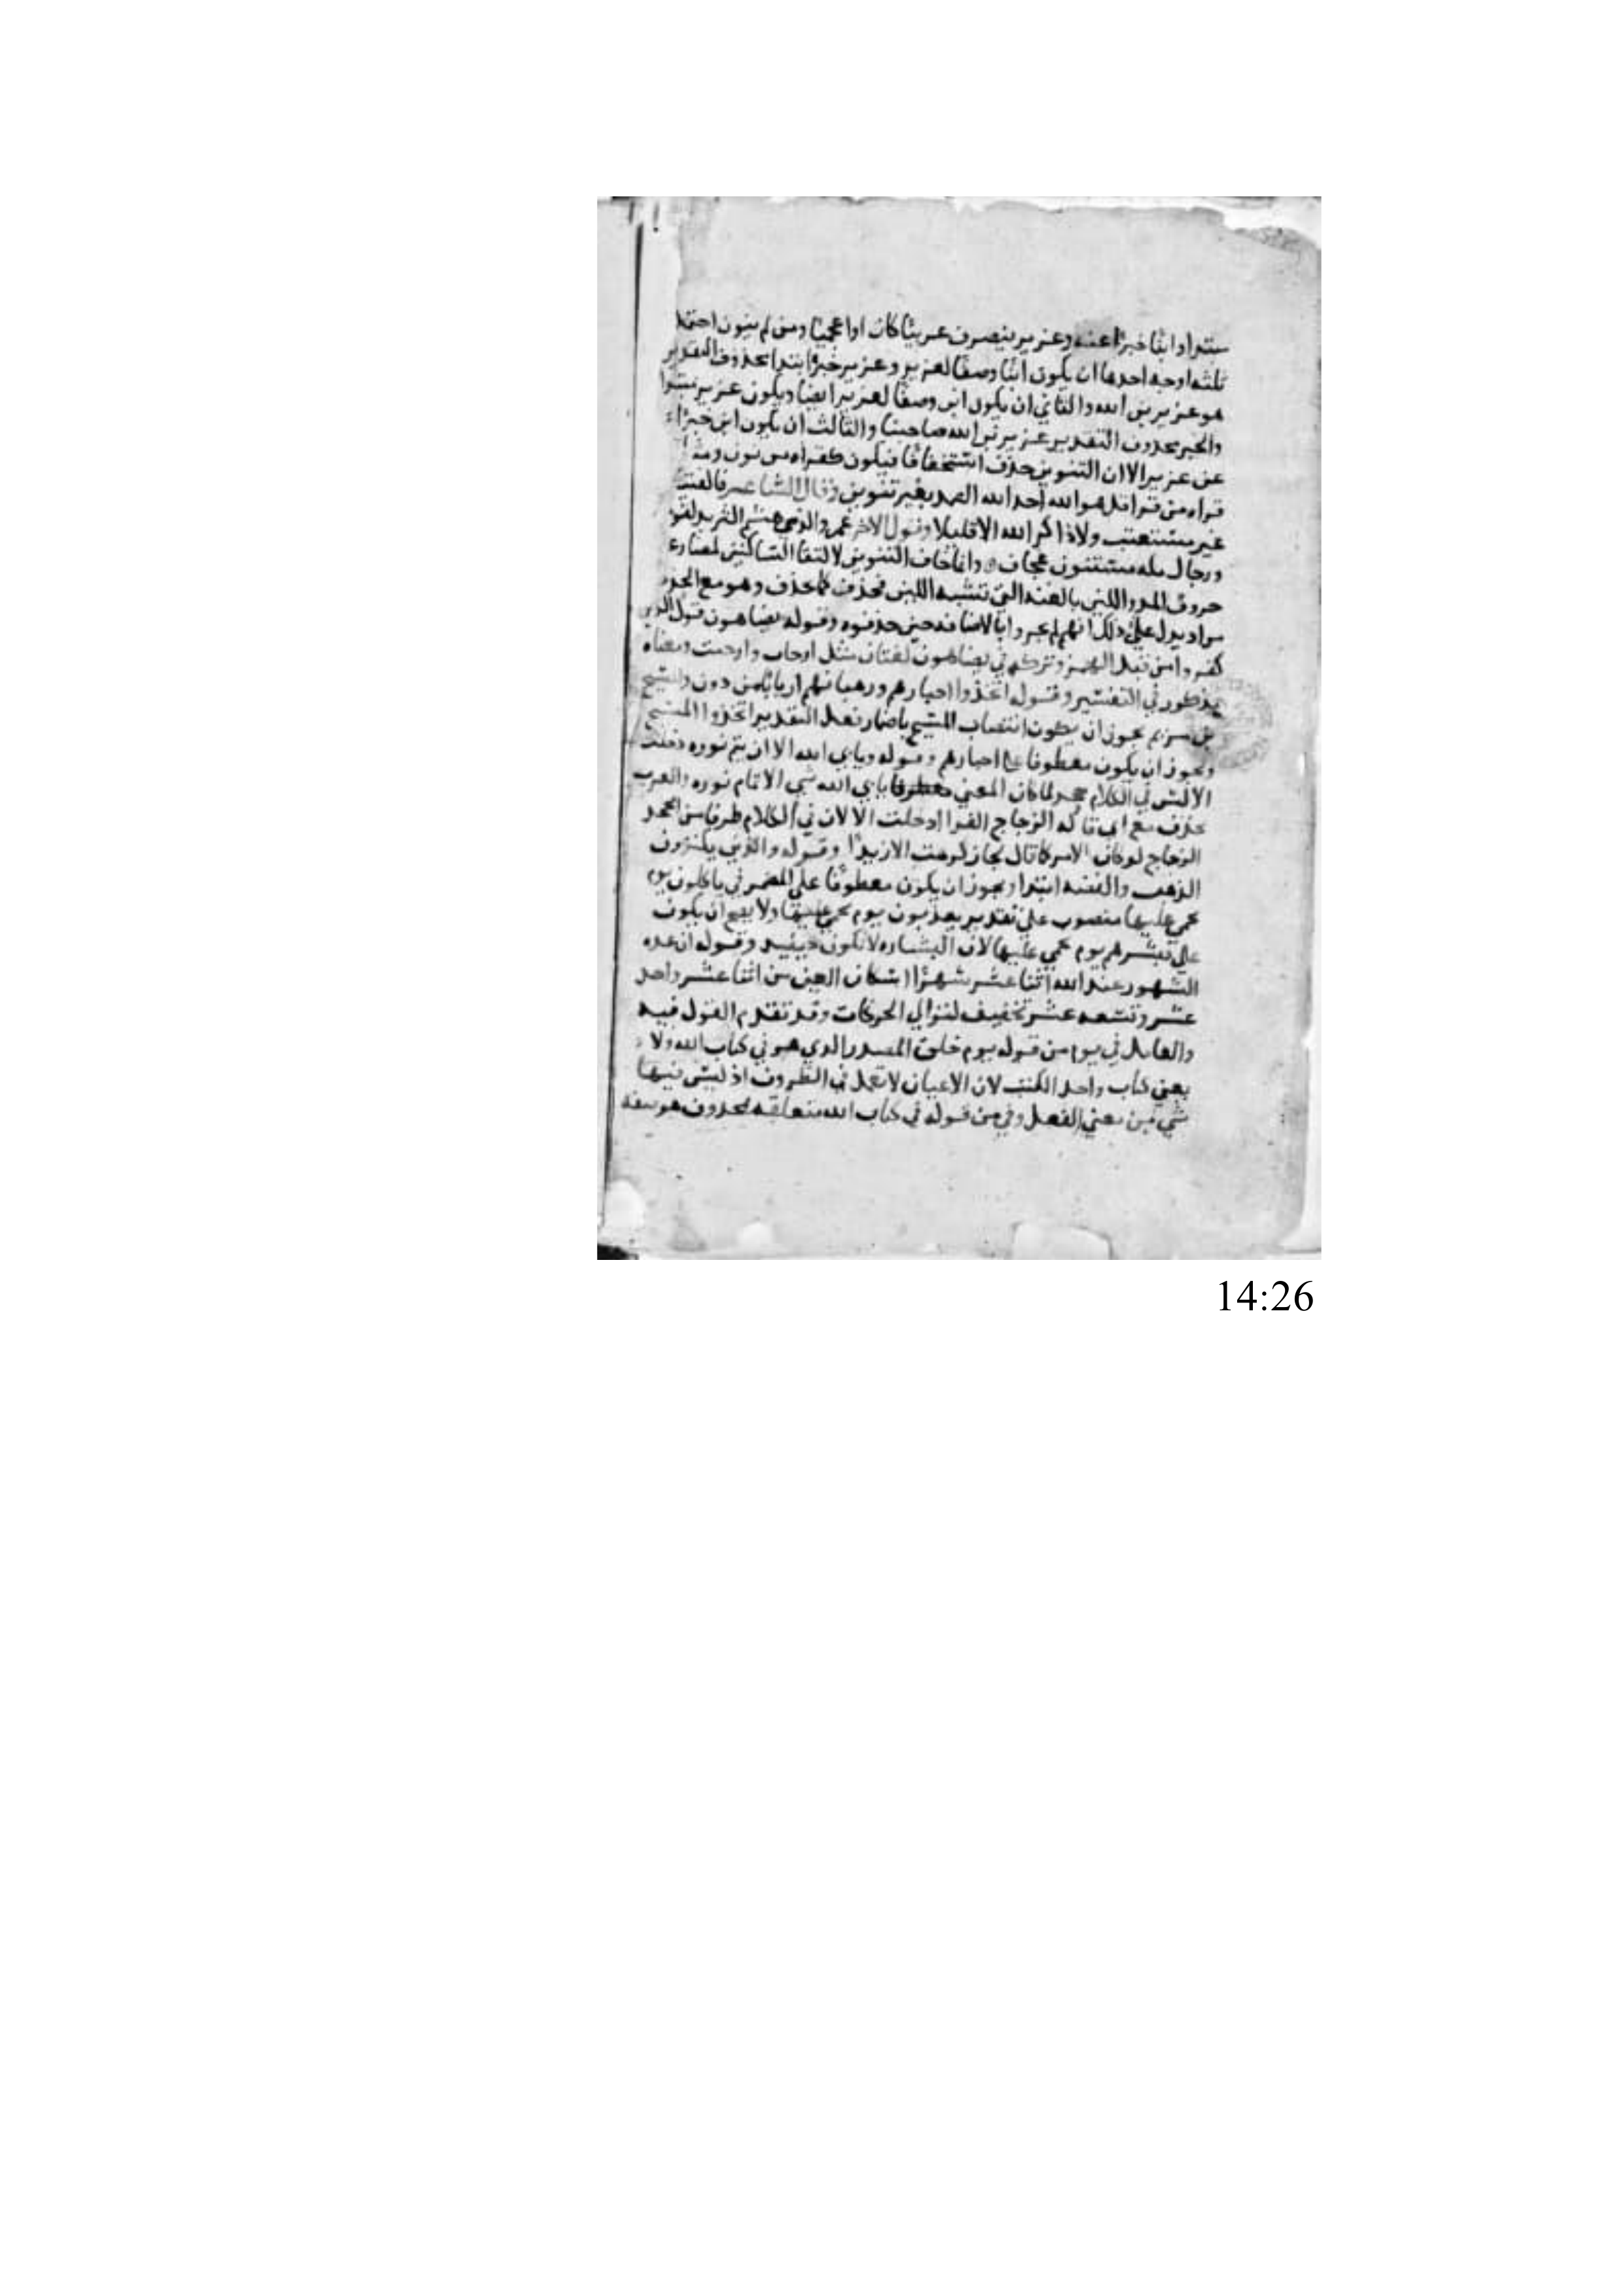 مبتدا وابنا خبرا عنه وعزير ينصرف عربيا كان او اعجميا ومن لم ينون احتمل
ثلثه اوجه احدها ان يكون ابنا وصفا لعزير وعزير خبر ابتدا محذوف التقدير
هو عزير بن الله والثاني ان يكون ابن وصفا لعزير ايضا ويكون عزير مبتدا
والخبر محذوف التقدير عزير بن الله صاحبنا والثالث ان يكون ابن خبرا
عن عزير الا ان التنوين حذف استخفافا فيكون كقراه من نون ومثله
قراه من قرا قل هو الله احد الله الصمد بغير تنوين وقال الشاعر فالفيته
غير مستعتب ولا ذاكر الله الا قليلا وقول الاخر عمرو الذي هشم الثريد لقومه
ورجال مكه مسنتون عجاف وانما حذف التنوين لالتقا الساكنين لمضارعه
حروف المد واللين بالغنه التي تشبه اللين فحذف كما تحذف وهو مع الحذف
مراد يدل علي ذلك انهم لم يجروا بالاضافه حين حذفوه وقوله يضاهون قول الذين
كفروا من قبل الهمز وتركه في يضاهون لغتان مثل ارجات وارجيت ومعناه
مذكور في التفسير وقوله اتخذوا احبارهم ورهبانهم اربابا من دون والمسيح
بن مريم يجوز ان يكون انتصاب المسيح باضمار فعل التقدير اتخذوا المسيح
ويجوز ان يكون معطوفا علي احبارهم وقوله ويابي الله الا ان يتم نوره دخلت
الا ليس في الكلام جحد لما كان المعني يابي الله شي الا اتمام نوره والعرب
تحذف مع ابي قاله الزجاج الفرا دخلت الا لان في الكلام طرفا من الجحد
الزجاج لو كان الامر كما قال لجاز كرهت الا زيدا وقوله والذين يكنزون
الذهب والفضه ابتدا ويجوز ان يكون معطوفا علي المضمر في ياكلون يوم
يحمي عليها منصوب علي تقدير يعذبون يوم يحمي عليها ولا يصح ان يكون
علي فبشرهم يوم يحمي عليها لان البشاره لا تكون حينيذ وقوله ان عده
الشهور عند الله اثنا عشر شهرا اسكان العين من اثنا عشر واحد
عشر وتسعه عشر تخفيف لتوالي الحركات وقد تقدم القول فيه
والعامل في يوم من قوله يوم خلق المصدر الذي هو في كتاب الله ولا
يعني كتاب واحد الكتب لان الاعيان لا تعمل في الظروف اذ ليس فيها
شي من معني الفعل وفي من قوله في كتاب الله متعلقه بمحذوف هو صفه
14:26